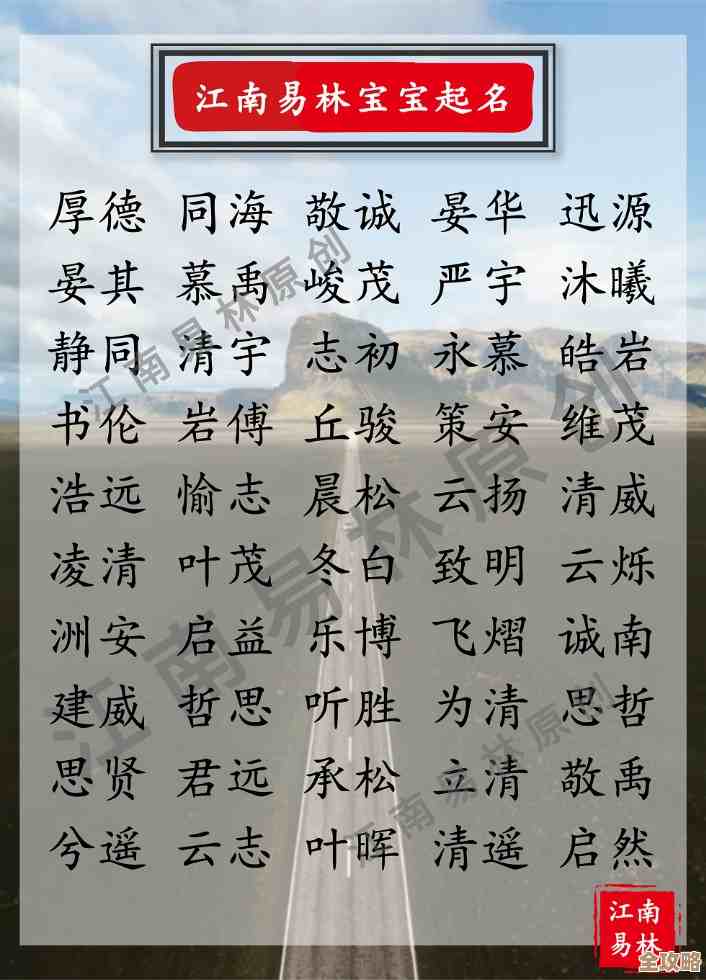 江南易林宝宝起名
厚德 同海 敬诚 晏华 迅源
晏其 慕禹 峻茂 严宇 沐曦
静同 清宇 志初 永慕 皓岩
书伦 岩傅 丘骏 策安 维茂
浩远 愉志 晨松 云扬 清威
凌清 叶茂 冬白 致明 云烁
洲安 启益 乐博 飞熠 诚南
建威 哲思 听胜 为清 思哲
思贤 君远 承松 立清 敬禹
兮遥 云志 叶晖 清遥 启然
江南易林原创
江南易林原创
江南易林原创
江南
易林
全攻略